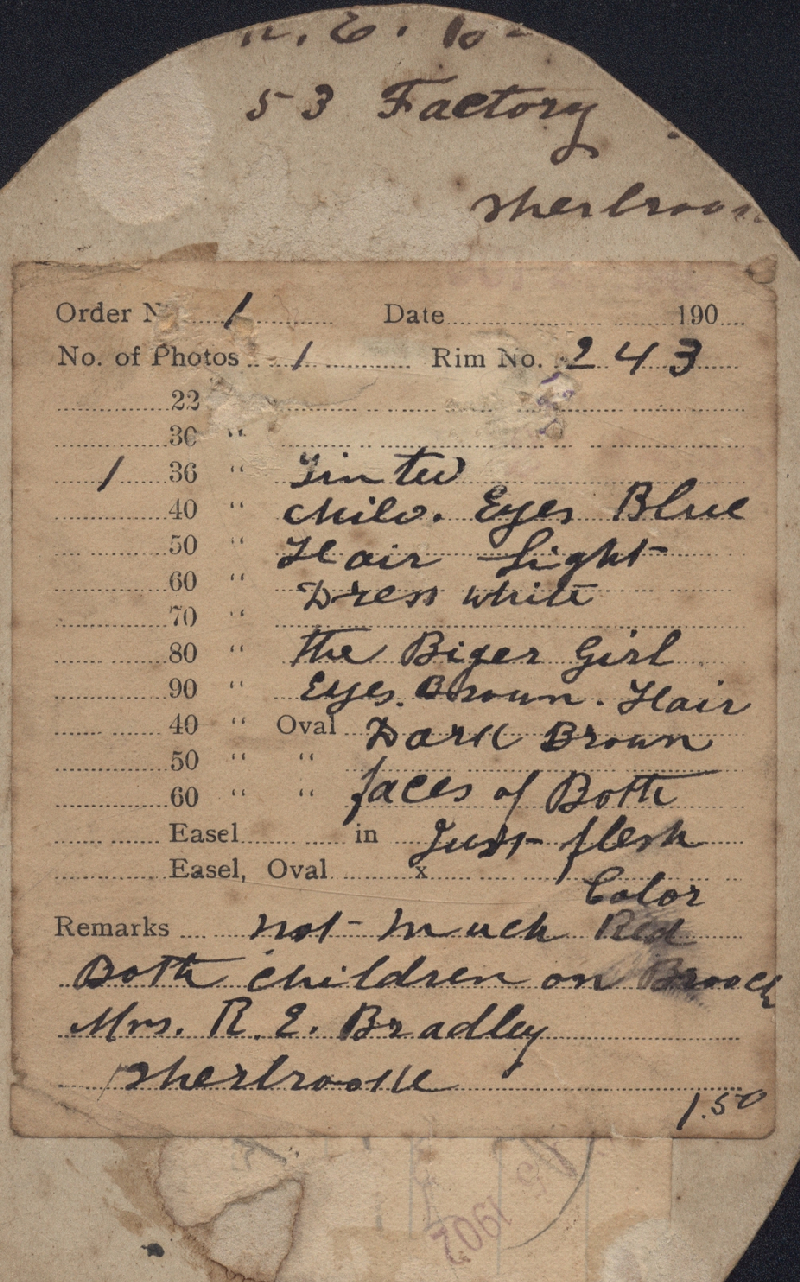 53 Factory
Sherbroo
Order N 1 Date 190
No. of Photos 1 Rim No. 243
22
30 "
1 36 " Tinted
40 " Child. Eyes Blue
50 " Hair Light
60 " Dress white
70 "
80 " the Biger Girl
90 " Eyes. Brown. Hair
40 " Oval Dark Brown
50 " "
60 " " faces of Both
Easel in Just flesh
Easel, Oval x Color
Remarks not much Red
Both Children on Brooch
Mrs. R. E. Bradley
Sherbrooke
1.50
1902